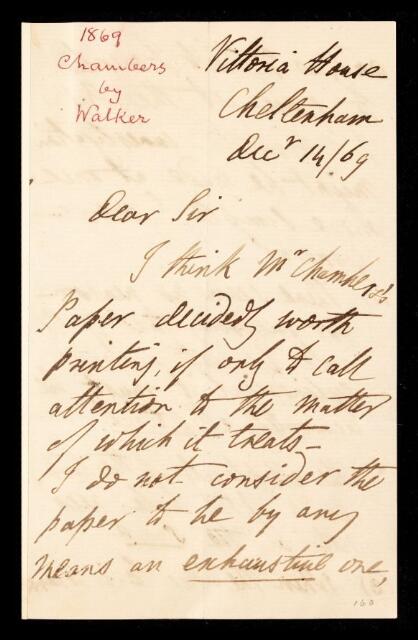 1869
Chambers
by
Walker
Vittoria House
Cheltenham
Decr 14/69
Dear Sir
I think Mr Chambers's
Paper decidedly worth
printing, if only to call
attention to the matter
of which it treats –
I do not consider the
paper to be by any
means an exhaustive one,
160